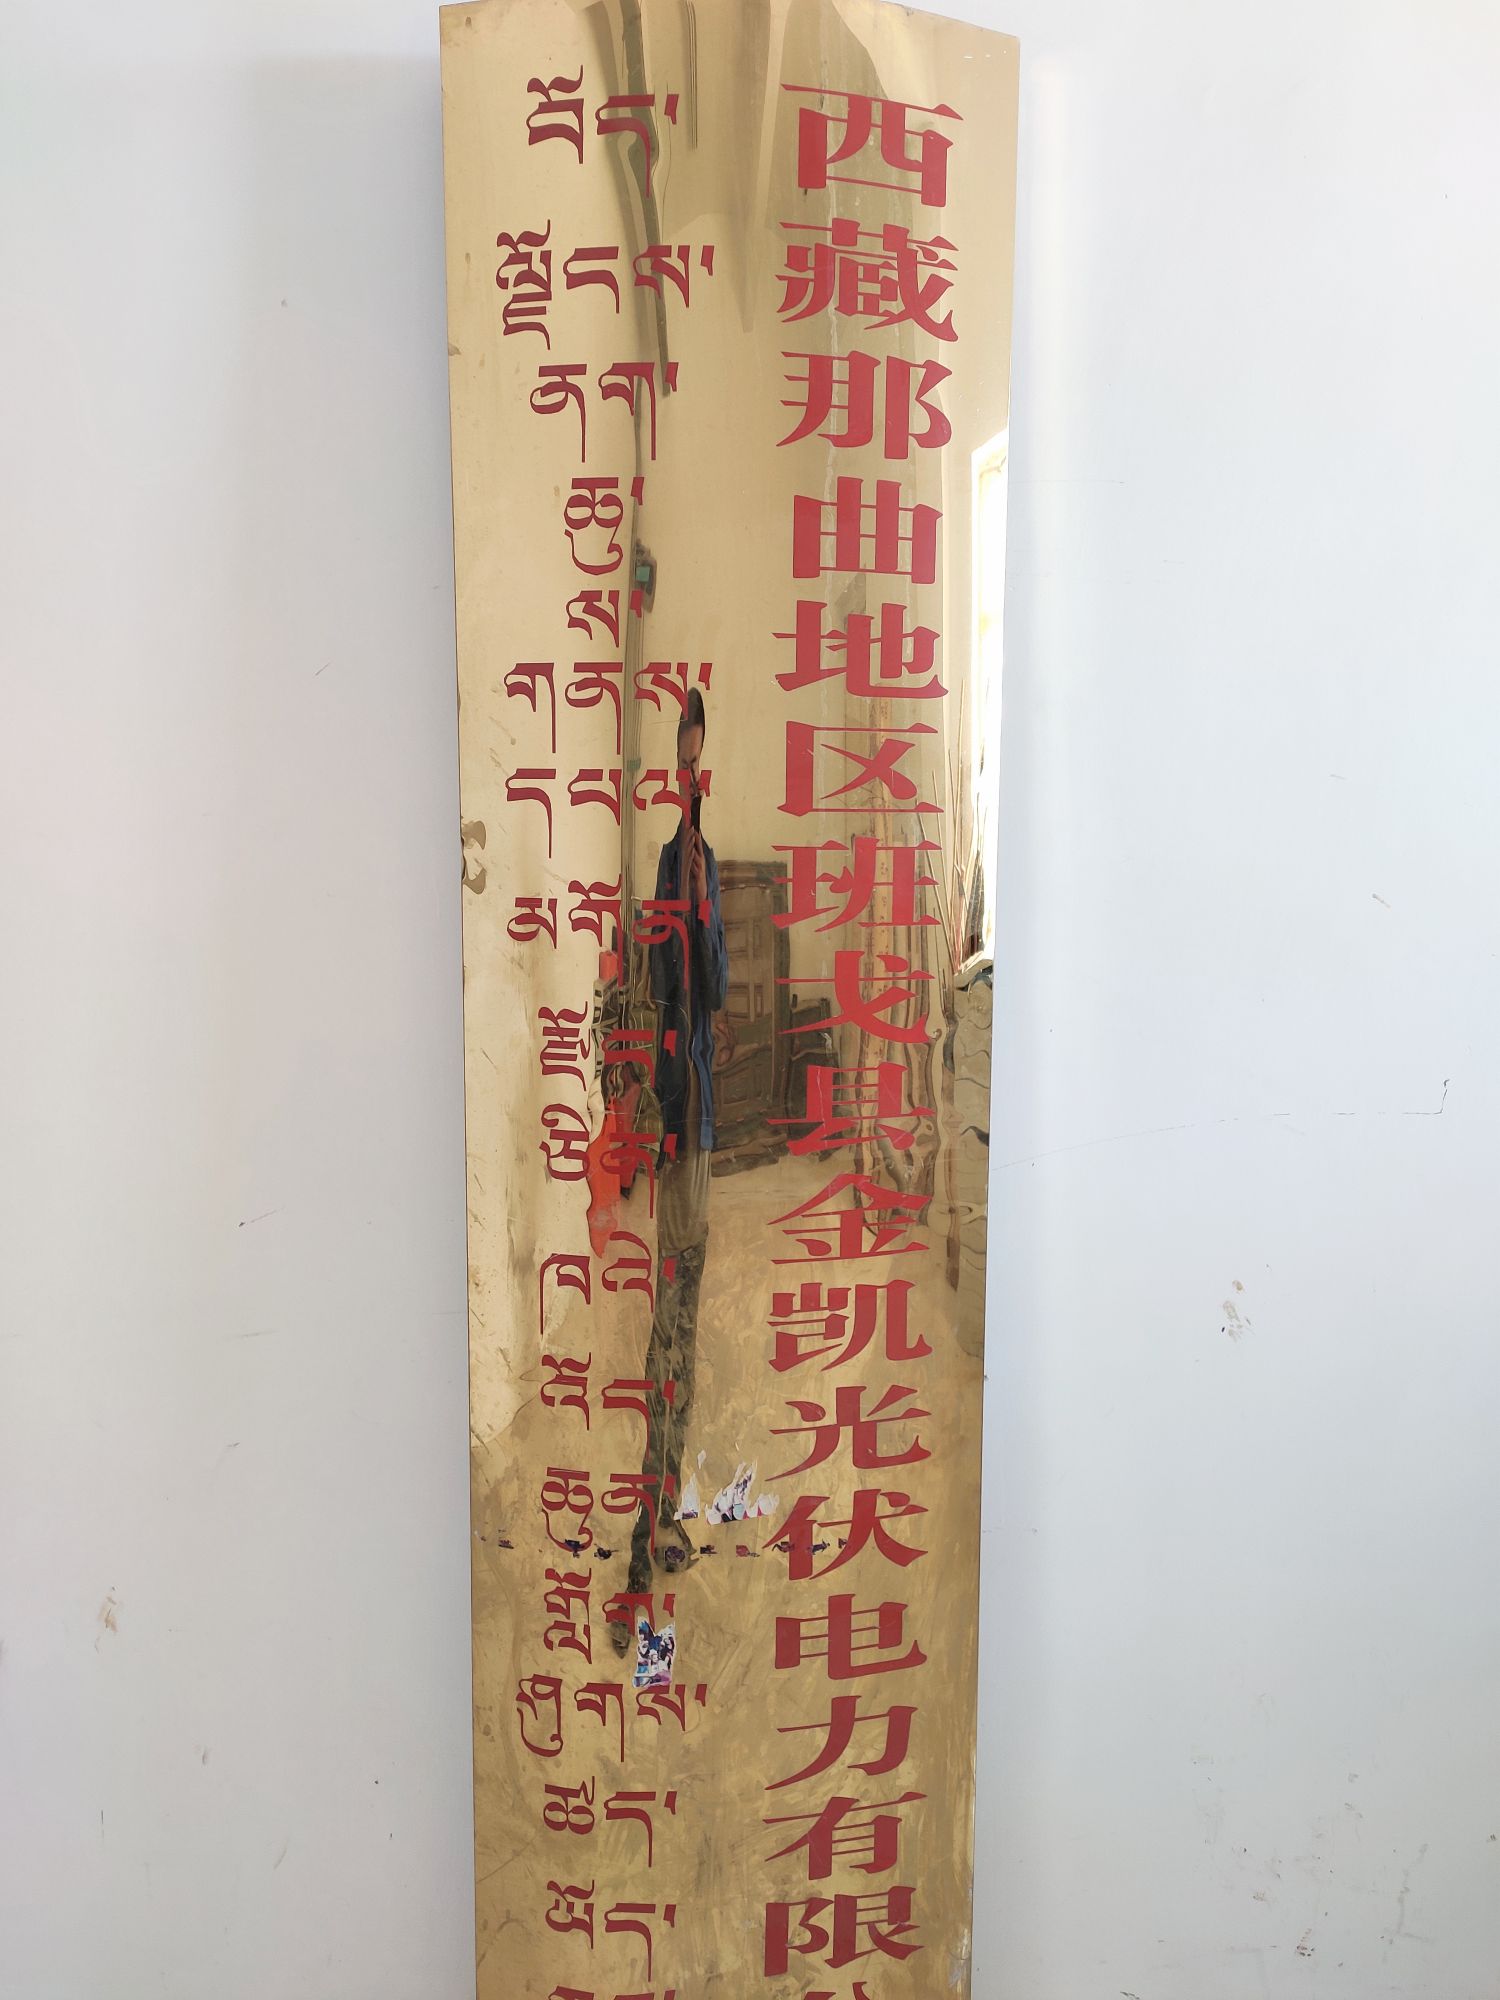 西藏那曲地区班戈县金凯光伏电力有限
བོད་ལྗོངས་ནག་ཆུ་ས་གནས་དཔལ་མགོན་རྫོང་ཅིན་ འོད་ གློག་ཤུགས་ཚད་ཡོད་